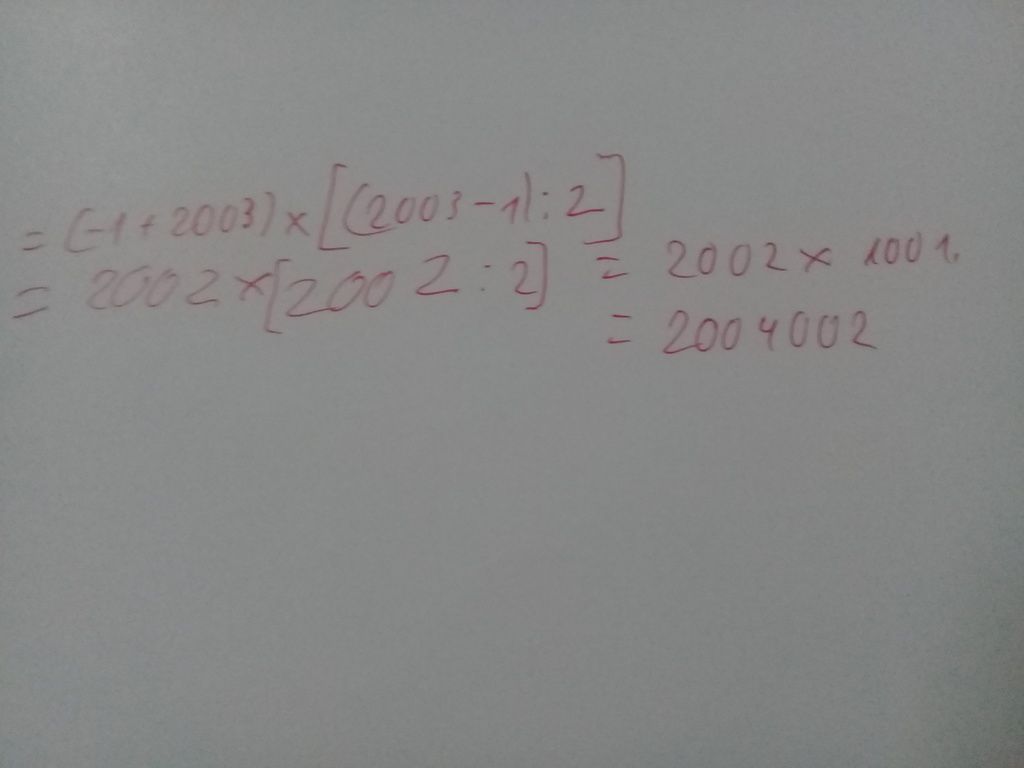 = (-1 + 2003) x [(2003 - 1) : 2]
= 2002 x [2002 : 2] = 2002 x 1001.
= 2004002